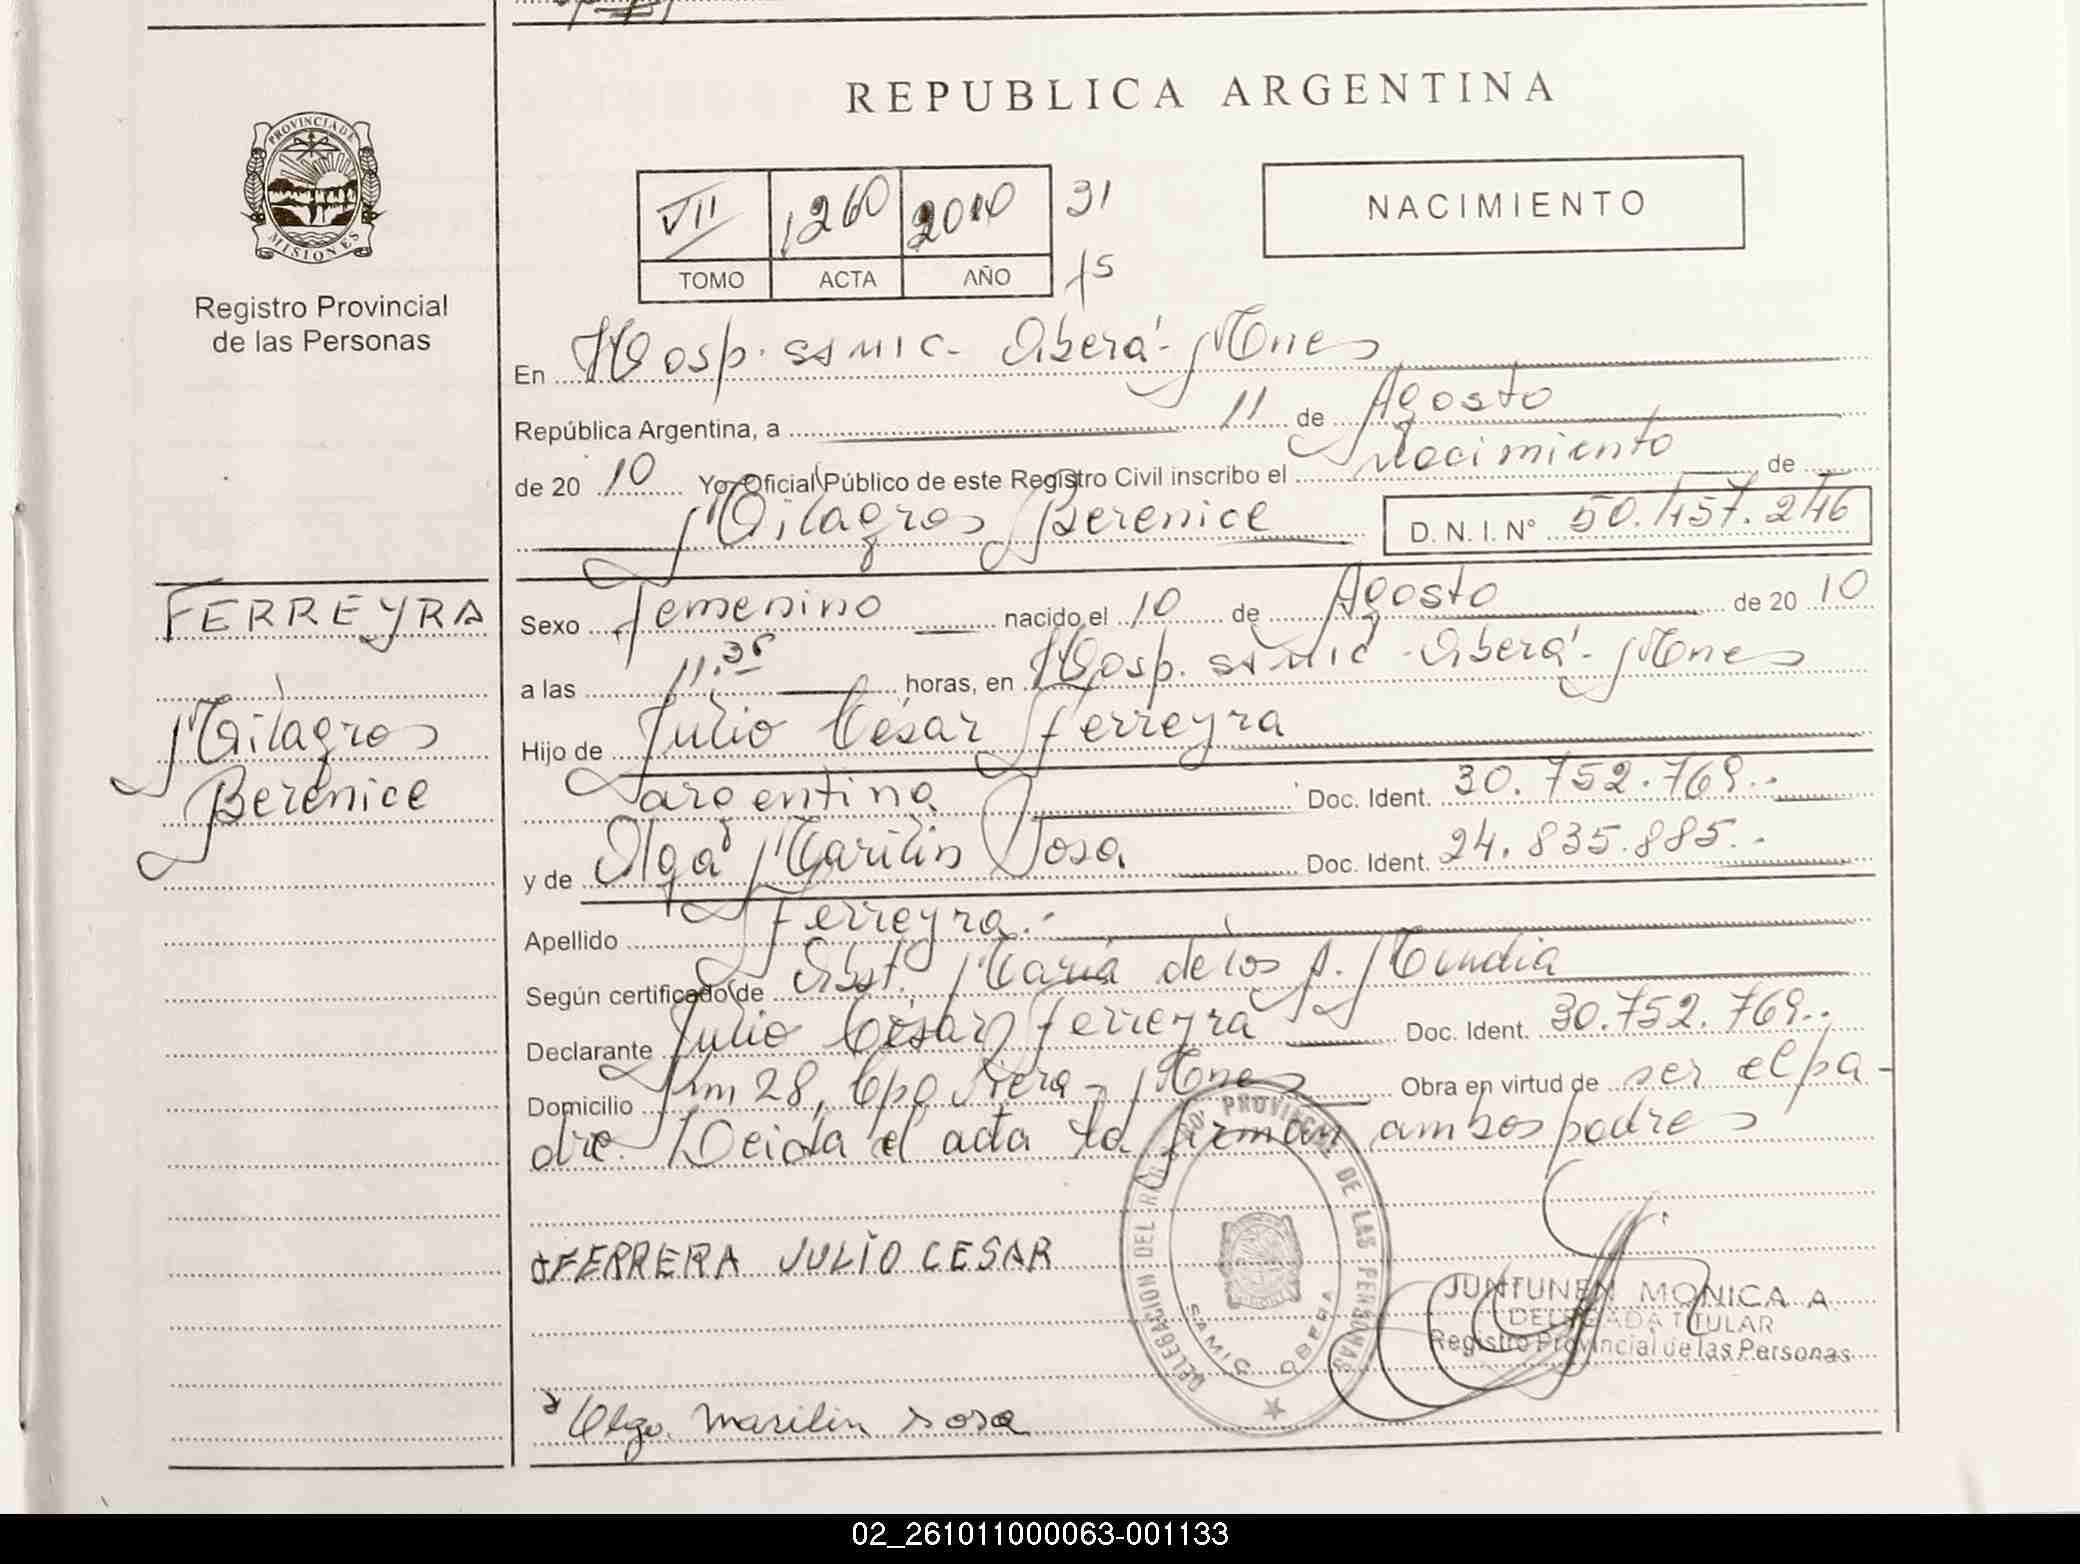 REPUBLICA ARGENTINA
PROVINCIA DE
MISIONES
Registro Provincial
de las Personas
VII 1260 2010 31
TOMO ACTA AÑO 15
NACIMIENTO
En Hosp. SAMIC - Oberá - Mnes
República Argentina, a 11 de Agosto
de 20 10 Yo, Oficial Público de este Registro Civil inscribo el Nacimiento de
Milagros Berenice D. N. I. N° 50.457.246
FERREYRA
Milagros
Berenice
Sexo femenino nacido el 10 de Agosto de 20 10
a las 11.35 horas, en Hosp. SAMIC - Oberá - Mnes
Hijo de Julio César Ferreyra
argentina Doc. Ident. 30.752.769.-
y de Olga Marilin Sosa Doc. Ident. 24.835.885.-
Apellido Ferreyra.-
Según certificado de Obst. María de los A.
Declarante Julio César Ferreyra Doc. Ident. 30.752.769.-
Domicilio Km 28, Cpo Viera - Mnes Obra en virtud de ser el pa-
dre. Leida el acta la firman ambos padres
FERRERA JULIO CESAR
DELEGACION DEL PROVINCIAL DE LAS PERSONAS
SAMIC OBERA
JUNTUNEN MONICA A
DELEGADA TITULAR
Registro Provincial de las Personas
Olga Marilin Sosa
02_261011000063-001133